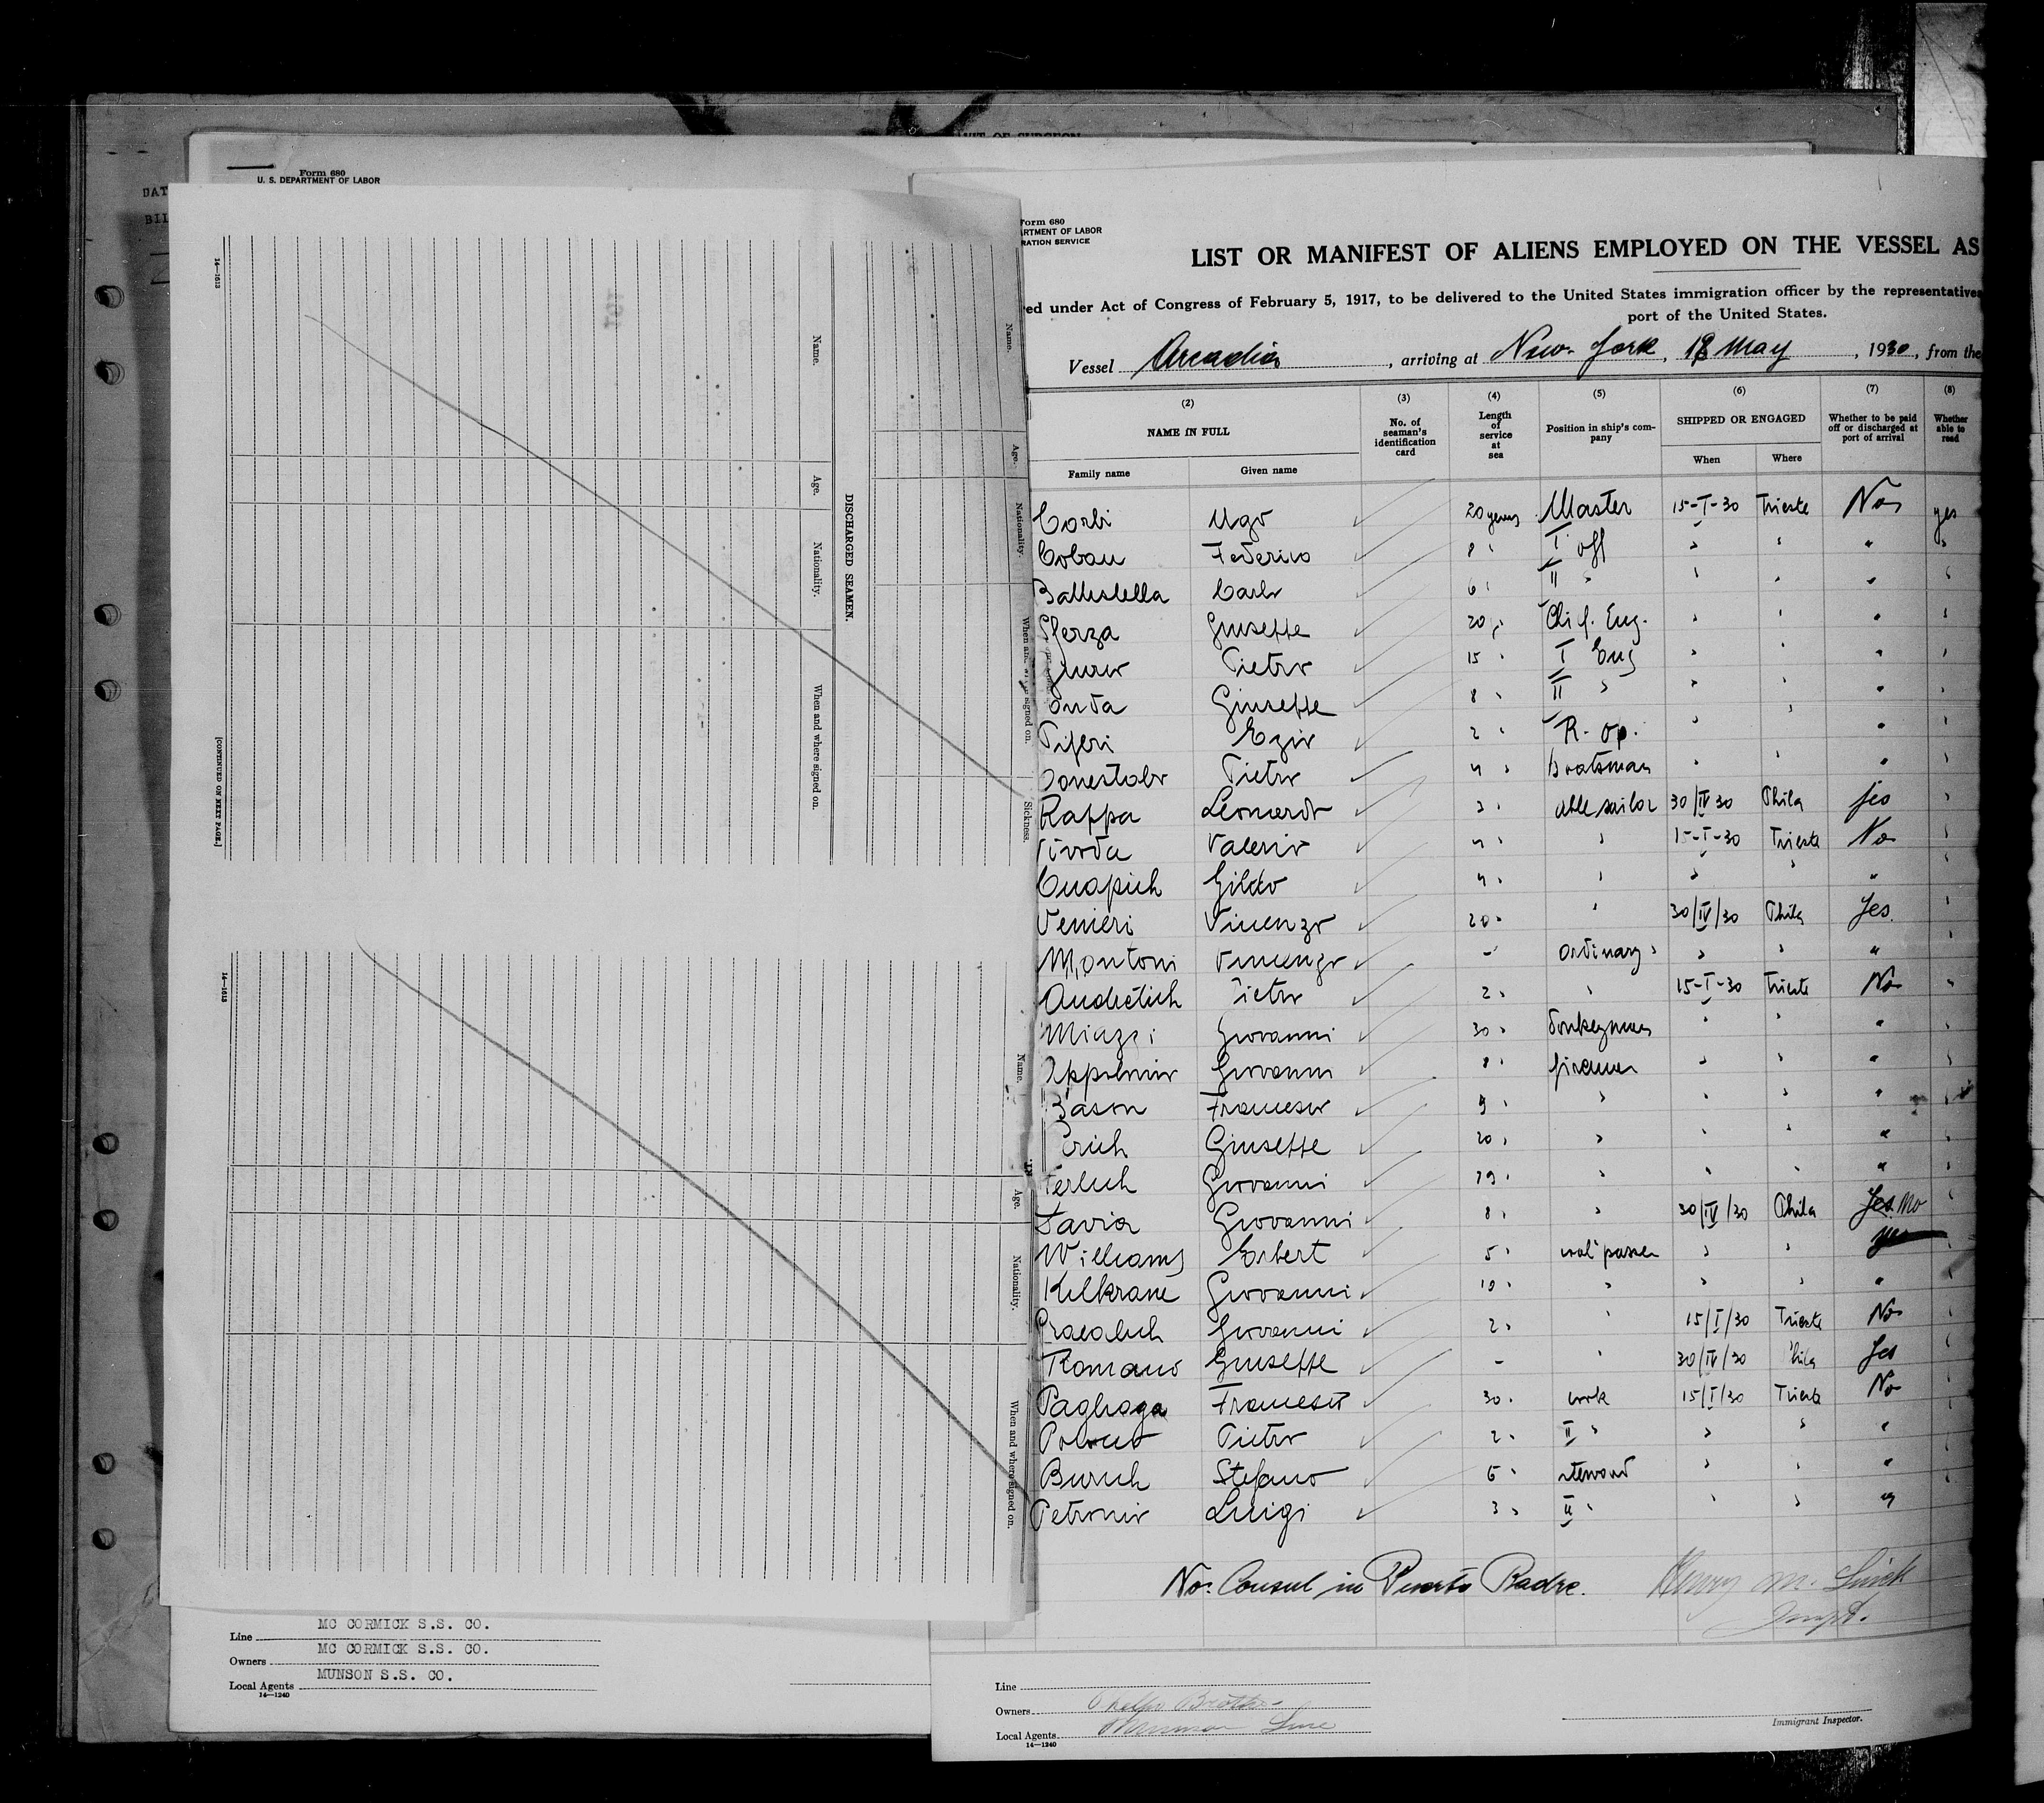 Form 680
U. S. DEPARTMENT OF LABOR
DAT
BIL
14—1613
Name.
Age.
Nationality.
When and where signed on.
DISCHARGED SEAMEN.
[CONTINUED ON NEXT PAGE.]
Name.
Age.
Nationality.
signed on.
Sickness.
14—1613
Name.
Age.
Nationality.
When and where signed on.
Line MC CORMICK S.S. CO.
Owners MC CORMICK S.S. CO.
Local Agents MUNSON S.S. CO.
14—1240
Form 680
ARTMENT OF LABOR
RATION SERVICE
LIST OR MANIFEST OF ALIENS EMPLOYED ON THE VESSEL AS
ed under Act of Congress of February 5, 1917, to be delivered to the United States immigration officer by the representatives
port of the United States.
Vessel Arcadia, arriving at New York, 18 May, 1930, from the
(2) (3) (4) (5) (6) (7) (8)
NAME IN FULL
Family name Given name
No. of seaman's identification card
Length of service at sea
Position in ship's company
SHIPPED OR ENGAGED
When Where
Whether to be paid off or discharged at port of arrival
Whether able to read
Corbi Ugo 20 years Master 15-I-30 Trieste No yes
Coban Federico 8 " I off " " " "
Ballestella Carlo 6 " II " " " " "
Sferza Giuseppe 20 " Chief. Eng. " " " "
Pietro 15 " I Eng " " " "
Giuseppe 8 " II " " " " "
Piferi Ezio 2 " R. op. " " " "
Conestabo Pietro 4 " boatsman " " " "
Rappa Leonardo 3 " able sailor 30/IV 30 Phila yes "
Valerio 4 " " 15-I-30 Trieste No "
Cnapich Gildo 4 " " " " " "
Venieri Vincenzo 20 " " 30/IV/30 Phila Yes. "
Montoni Vincenzo - ordinary " " " " "
Andretich Pietro 2 " " 15-I-30 Trieste No "
Giovanni 30 " donkeyman " " " "
Appolonio Giovanni 8 " fireman " " " "
Bason Francesco 9 " " " " " "
Perich Giuseppe 20 " " " " " "
Terlich Giovanni 19 " " " " " "
Savia Giovanni 8 " " 30/IV/30 Phila Yes. No "
Williams Erbert 5 " coal passer " " yes "
Kilkrane Giovanni 10 " " " " " "
Giovanni 2 " " 15/I/30 Trieste No "
Romano Giuseppe - " 30/IV/30 Phila Yes "
Pagliaga Francesco 30 " cook 15/I/30 Trieste No "
Pietro 2 " II " " " " "
Burich Stefano 6 " steward " " " "
Petronio Luigi 3 " II " " " "
No. Consul in Puerto Padre.
Henry M.
Inspt.
Line
Owners Phelps Brothers
Local Agents Line
14—1240
Immigrant Inspector.